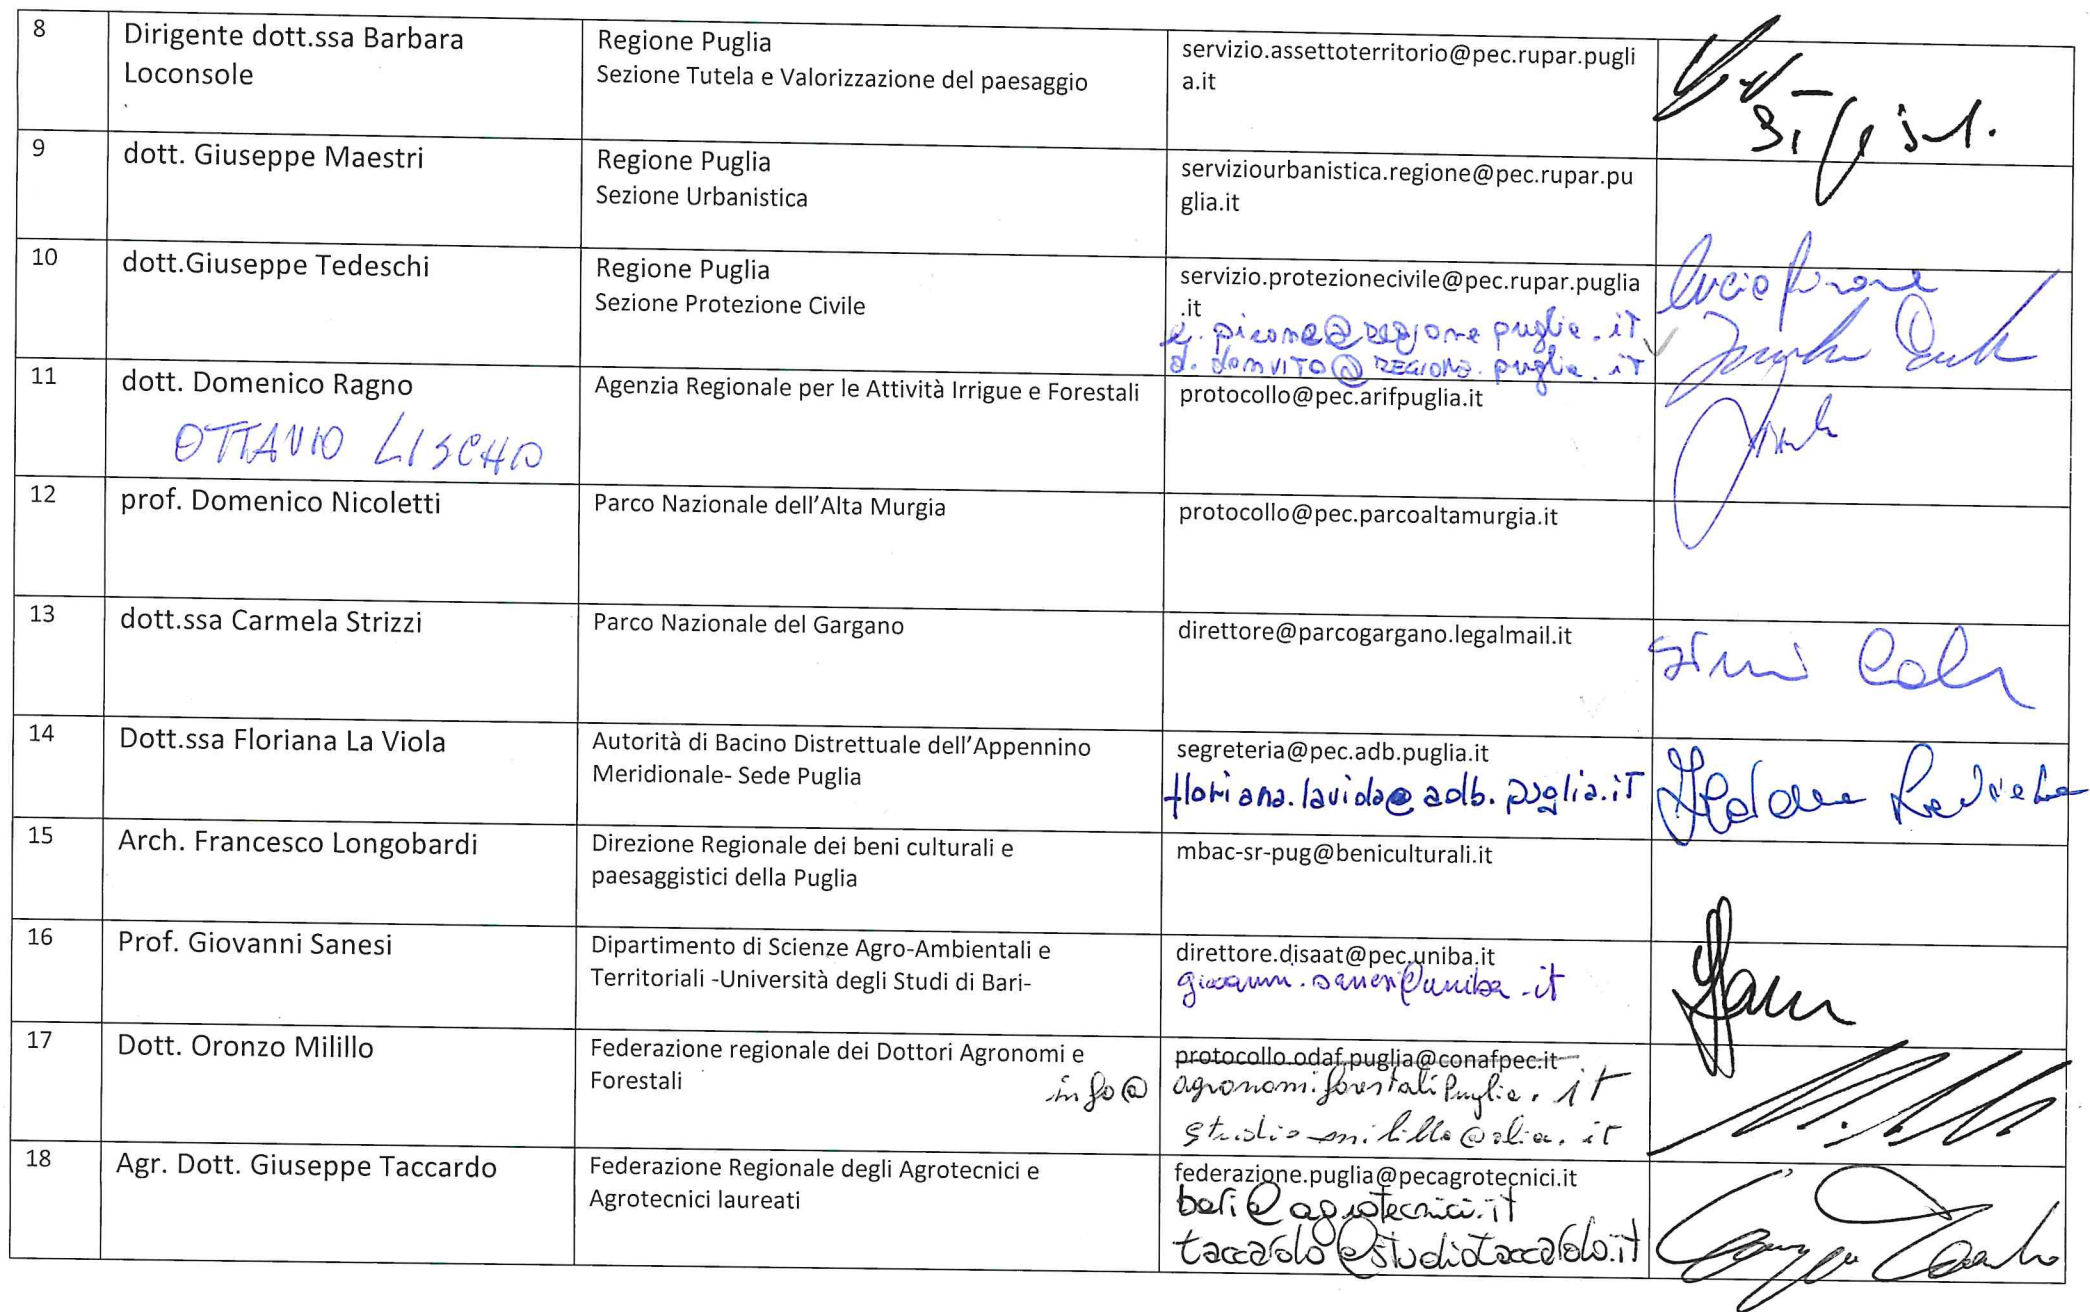 8
Dirigente dott.ssa Barbara
Loconsole
Regione Puglia
Sezione Tutela e Valorizzazione del paesaggio
servizio.assettoterritorio@pec.rupar.pugli
a.it
9
dott. Giuseppe Maestri
Regione Puglia
Sezione Urbanistica
serviziourbanistica.regione@pec.rupar.pu
glia.it
10
dott.Giuseppe Tedeschi
Regione Puglia
Sezione Protezione Civile
servizio.protezionecivile@pec.rupar.puglia
.it
d.donvito@REGIONE.puglia.it
11
dott. Domenico Ragno
OTTAVIO LISCHIO
Agenzia Regionale per le Attività Irrigue e Forestali
protocollo@pec.arifpuglia.it
12
prof. Domenico Nicoletti
Parco Nazionale dell’Alta Murgia
protocollo@pec.parcoaltamurgia.it
13
dott.ssa Carmela Strizzi
Parco Nazionale del Gargano
direttore@parcogargano.legalmail.it
14
Dott.ssa Floriana La Viola
Autorità di Bacino Distrettuale dell’Appennino
Meridionale- Sede Puglia
segreteria@pec.adb.puglia.it
floriana.laviola@adb.puglia.it
15
Arch. Francesco Longobardi
Direzione Regionale dei beni culturali e
paesaggistici della Puglia
mbac-sr-pug@beniculturali.it
16
Prof. Giovanni Sanesi
Dipartimento di Scienze Agro-Ambientali e
Territoriali -Università degli Studi di Bari-
direttore.disaat@pec.uniba.it
giovanni.sanesi@uniba.it
17
Dott. Oronzo Milillo
Federazione regionale dei Dottori Agronomi e
Forestali
protocollo.odaf.puglia@conafpec.it
info@ agronomiforestalipuglia.it
18
Agr. Dott. Giuseppe Taccardo
Federazione Regionale degli Agrotecnici e
Agrotecnici laureati
federazione.puglia@pecagrotecnici.it
bari@agrotecnici.it
taccardo@studiotaccardo.it